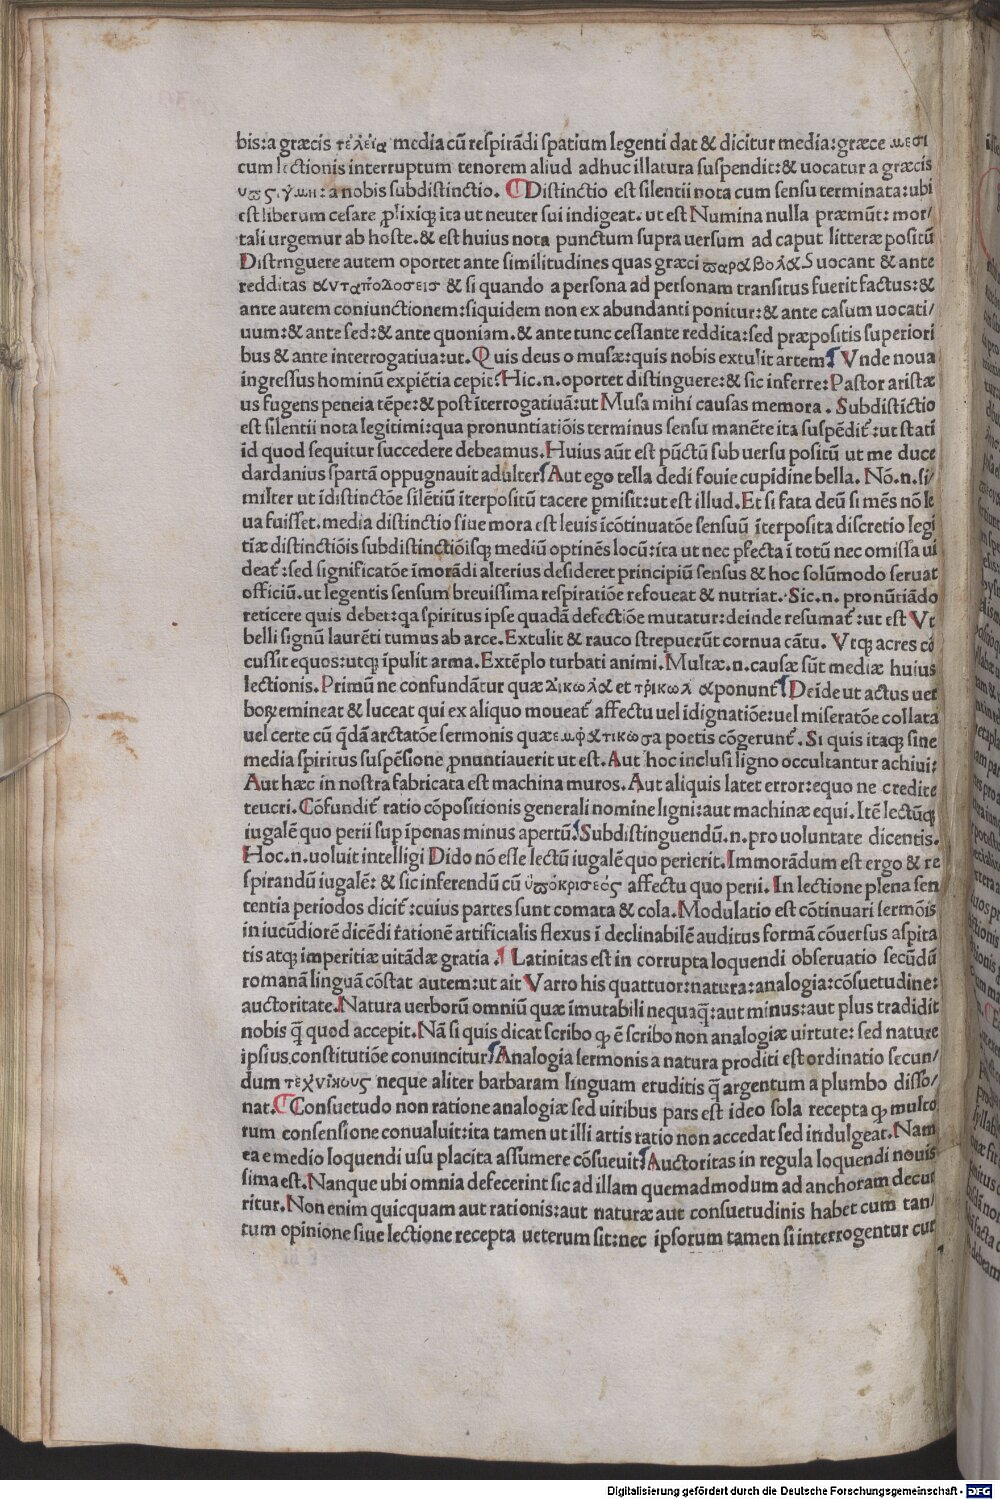 bis:a græcis τελεία media cū respirādi spatium legenti dat & dicitur media:græce μεσι
cum lectionis interruptum tenorem aliud adhuc illatura suspendit:& uocatur a græcis
a nobis subdistinctio. ¶ Distinctio est silentii nota cum sensu terminata:ubi
est liberum cesare ꝓlixiqꝫ ita ut neuter sui indigeat. ut est Numina nulla præmūt: mor/
tali urgemur ab hoste.& est huius nota punctum supra uersum ad caput litteræ positū
Distrnguere autem oportet ante similitudines quas græci ϖαραβολὰς uocant & ante
redditas ανταποδοσεισ & si quando a persona ad personam transitus fuerit factus:&
ante autem coniunctionem:siquidem non ex abundanti ponitur:& ante casum uocati/
uum:& ante sed:& ante quoniam.& ante tunc cessante reddita:sed præpositis superiori
bus & ante interrogatiua:ut. Quis deus o musæ:quis nobis extulit artem¶ Vnde noua
ingressus hominū expiētia cepit? Hic.n.oportet distinguere:& sic inferre: Pastor aristæ
us fugens peneia tēpe:& post īterrogatiuā:ut Musa mihi causas memora. Subdistictio
est silentii nota legitimi:qua pronuntiatiōis terminus sensu manēte ita suspēdit̄:ut stati
īd quod sequitur succedere debeamus. Huius aūt est pūctū sub uersu positū ut me duce
dardanius spartā oppugnauit adulter¶ Aut ego tella dedi fouie cupidine bella. Nō.n.si/
militer ut īdistinctōe silētiū īterpositū tacere ꝑmisit:ut est illud. Et si fata deū si mēs nō le
ua fuisset.media distinctio siue mora est leuis icōtinuatōe sensuū īterposita discretio legi
tiæ distinctiōis subdistinctiōisqꝫ mediū optinēs locū:ita ut nec ꝑfecta ī totū nec omissa ui
deat̄:sed significatōe īmorādi alterius desideret principiū sensus & hoc solūmodo seruat
officiū.ut legentis sensum breuissima respiratiōe refoueat & nutriat. Sic.n.pronūtiādo
reticere quis debet:qa spiritus ipse quadā defectiōe mutatur:deinde resumat̄:ut est Vt
belli signū laurēti turnus ab arce. Extulit & rauco strepuerūt cornua cātu. Vtqꝫ acres cō
cussit equos:utqꝫ īpulit arma. Extēplo turbati animi. Multæ.n.causæ sūt mediæ huius
lectionis. Primū ne confundātur quæ Δικωλα et τρικωλ αponunt̄¶ Deīde ut actus uer
boꝝ emineat & luceat qui ex aliquo moueat̄ affectu uel īdignatiōe:uel miseratōe collata
uel certe cū q̄dā arctatōe sermonis quæ εμφατικωσ a poetis cōgerunt̄. Si quis itaqꝫ sine
media spiritus suspēsione ꝓnuntiauerit ut est. Aut hoc inclusi ligno occultantur achiui:
Aut hæc in nostra fabricata est machina muros. Aut aliquis latet error:equo ne credite
teucri. Cōfundit̄ ratio cōpositionis generali nomine ligni:aut machinæ equi. Itē lectūqꝫ
iugalē quo perii sup īponas minus apertū.¶ Subdistinguendū.n.pro uoluntate dicentis.
Hoc.n.uoluit intelligi Dido nō esse lectū iugalē quo perierit. Immorādum est ergo & re
spirandū iugalē: & sic inferendū cū ὑϖόκρισεός affectu quo perii. In lectione plena sen
tentia periodos dicit̄:cuius partes sunt comata & cola. Modulatio est cōtinuari sermōis
in iucūdiorē dicēdi rationē artificialis flexus ī declinabilē auditus formā cōuersus aspita
tis atqꝫ imperitiæ uitādæ gratia.¶ Latinitas est in corrupta loquendi obseruatio secūdū
romanā linguā cōstat autem:ut ait Varro his quattuor:natura:analogia:cōsuetudine:
auctoritate. Natura uerborū omniū quæ īmutabili nequaq̄:aut minus:aut plus tradidit
nobis q̄ quod accepit. Nā si quis dicat scribo qꝫ ē scribo non analogiæ uirtute: sed nature
ipsius constitutiōe conuincitur¶ Analogia sermonis a natura proditi est ordinatio secun/
dum τεχνίκους neque aliter barbaram linguam eruditis q̄ argentum a plumbo disso/
nat.¶ Consuetudo non ratione analogiæ sed uiribus pars est ideo sola recepta qꝫ multo
rum consensione conualuit:ita tamen ut illi artis ratio non accedat sed indulgeat. Nam
ea e medio loquendi usu placita assumere cōsueuit¶ Auctoritas in regula loquendi nouis
sima est. Nanque ubi omnia defecerint sic ad illam quemadmodum ad anchoram decur
ritur. Non enim quicquam aut rationis:aut naturæ aut consuetudinis habet cum tan/
tum opinione siue lectione recepta ueterum sit:nec ipsorum tamen si interrogentur cur
Digitalisierung gefördert durch die Deutsche Forschungsgemeinschaft - DFG